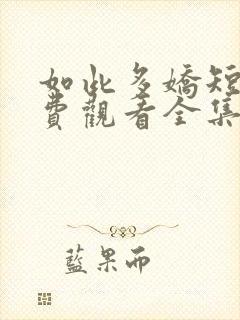 如此多嬌短
費觀看全集
藍果而